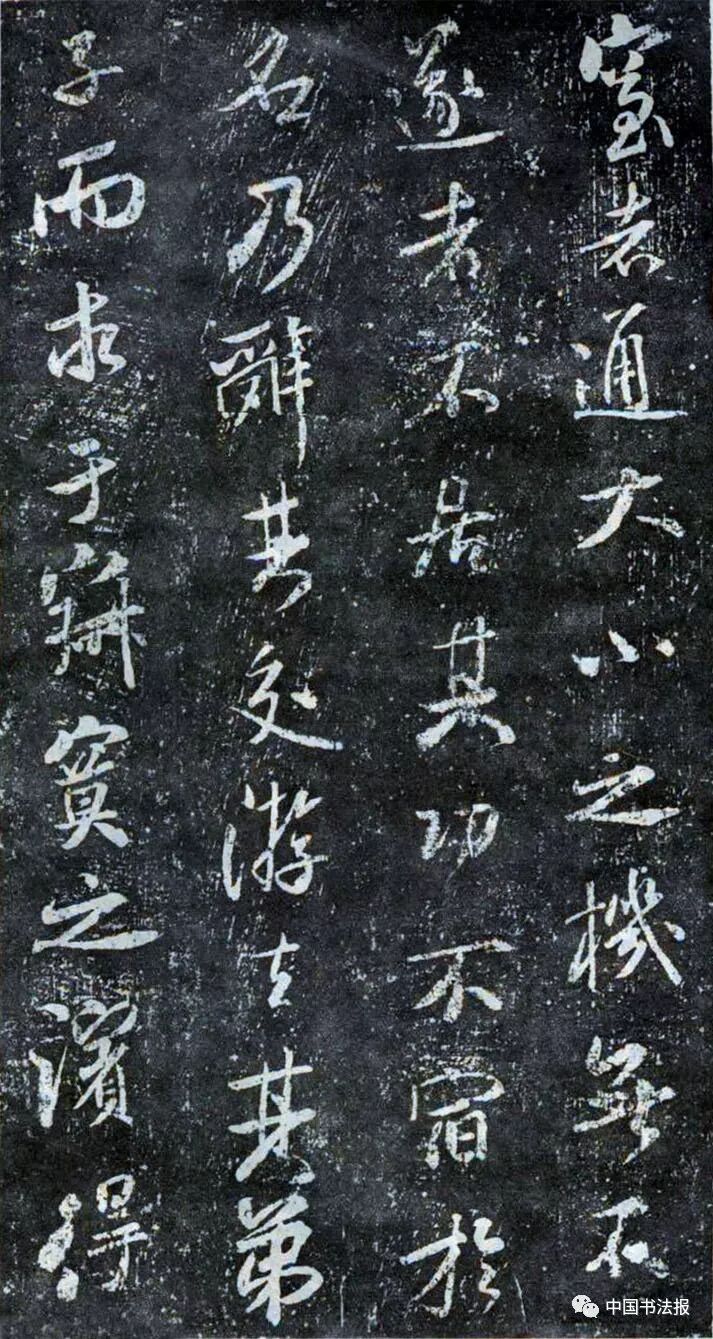 窒者通大小之機無不
遂者不居其功不宿於
名乃辭其交游去其弟
子而求于寂寞之濱得
中国书法报